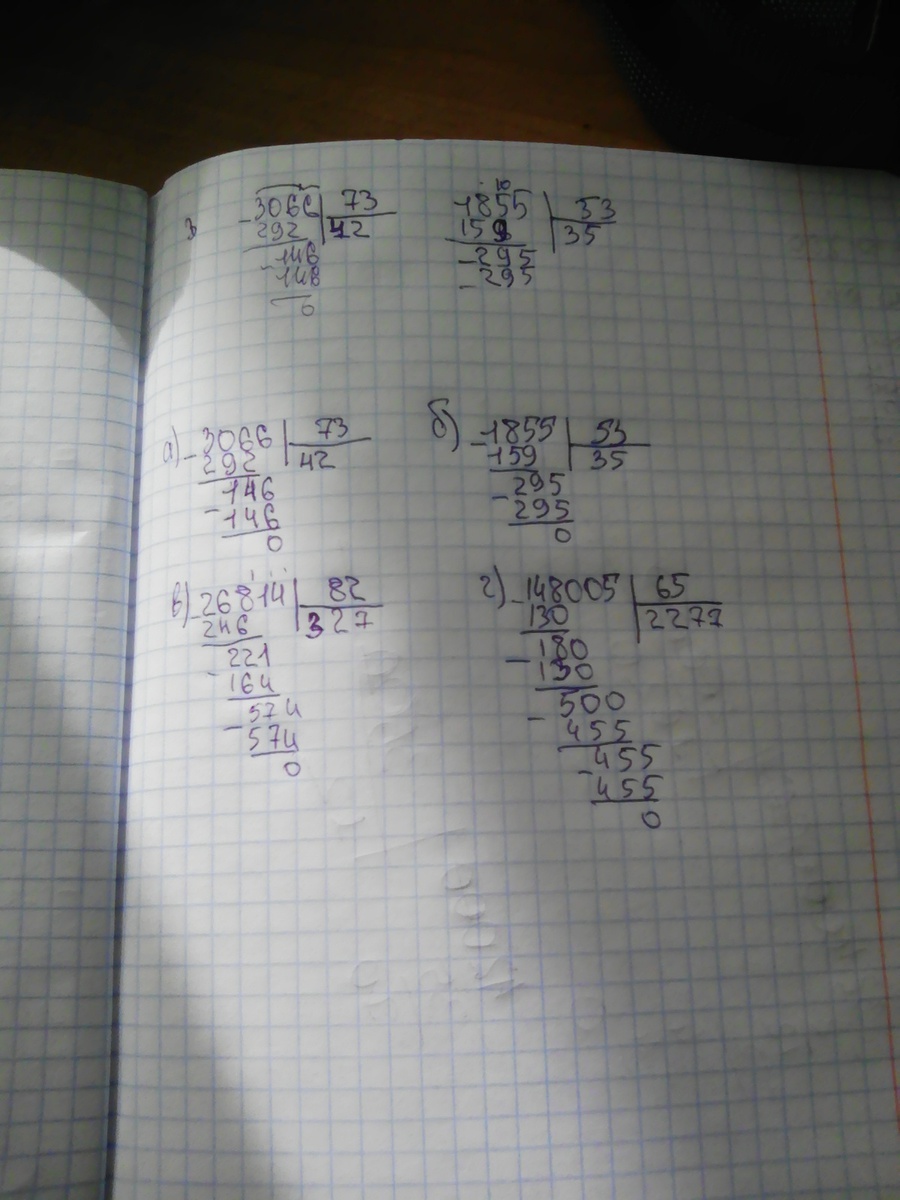 3066 73
292 42
146
146
0
1855 53
159 35
295
295
а) 3066 73
292 42
146
146
0
б) 1855 53
159 35
295
295
0
в) 26814 82
246 327
221
164
574
574
0
г) 148005 65
130 2277
180
130
500
455
455
455
0